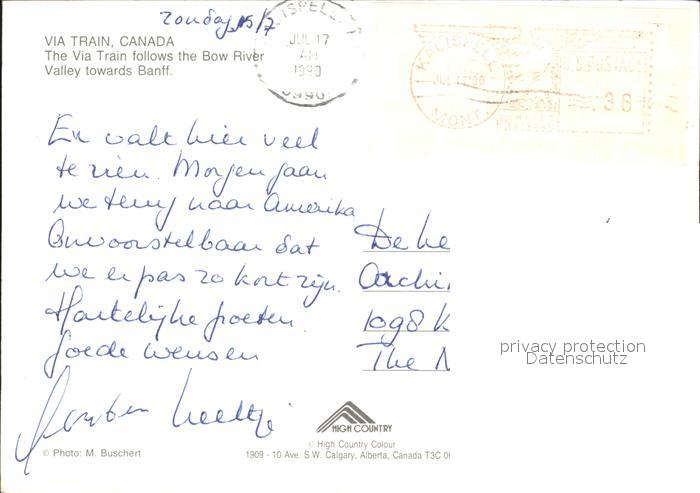 zondag 15/7
VIA TRAIN, CANADA
The Via Train follows the Bow River
Valley towards Banff.
KALISPELL
JUL 17
AM
1990
59901
KALISPELL
JUL 17'90
MONT.
U.S. POSTAGE
.36
Er valt hier veel
te zien. Morgen gaan
we terug naar Amerika
Onvoorstelbaar dat
we er pas zo kort zijn.
Hartelijke groeten.
goede wensen
De he
1098 K
The N
privacy protection
Datenschutz
HIGH COUNTRY
© High Country Colour
1909 - 10 Ave. S.W. Calgary, Alberta, Canada T3C 0
© Photo: M. Buschert